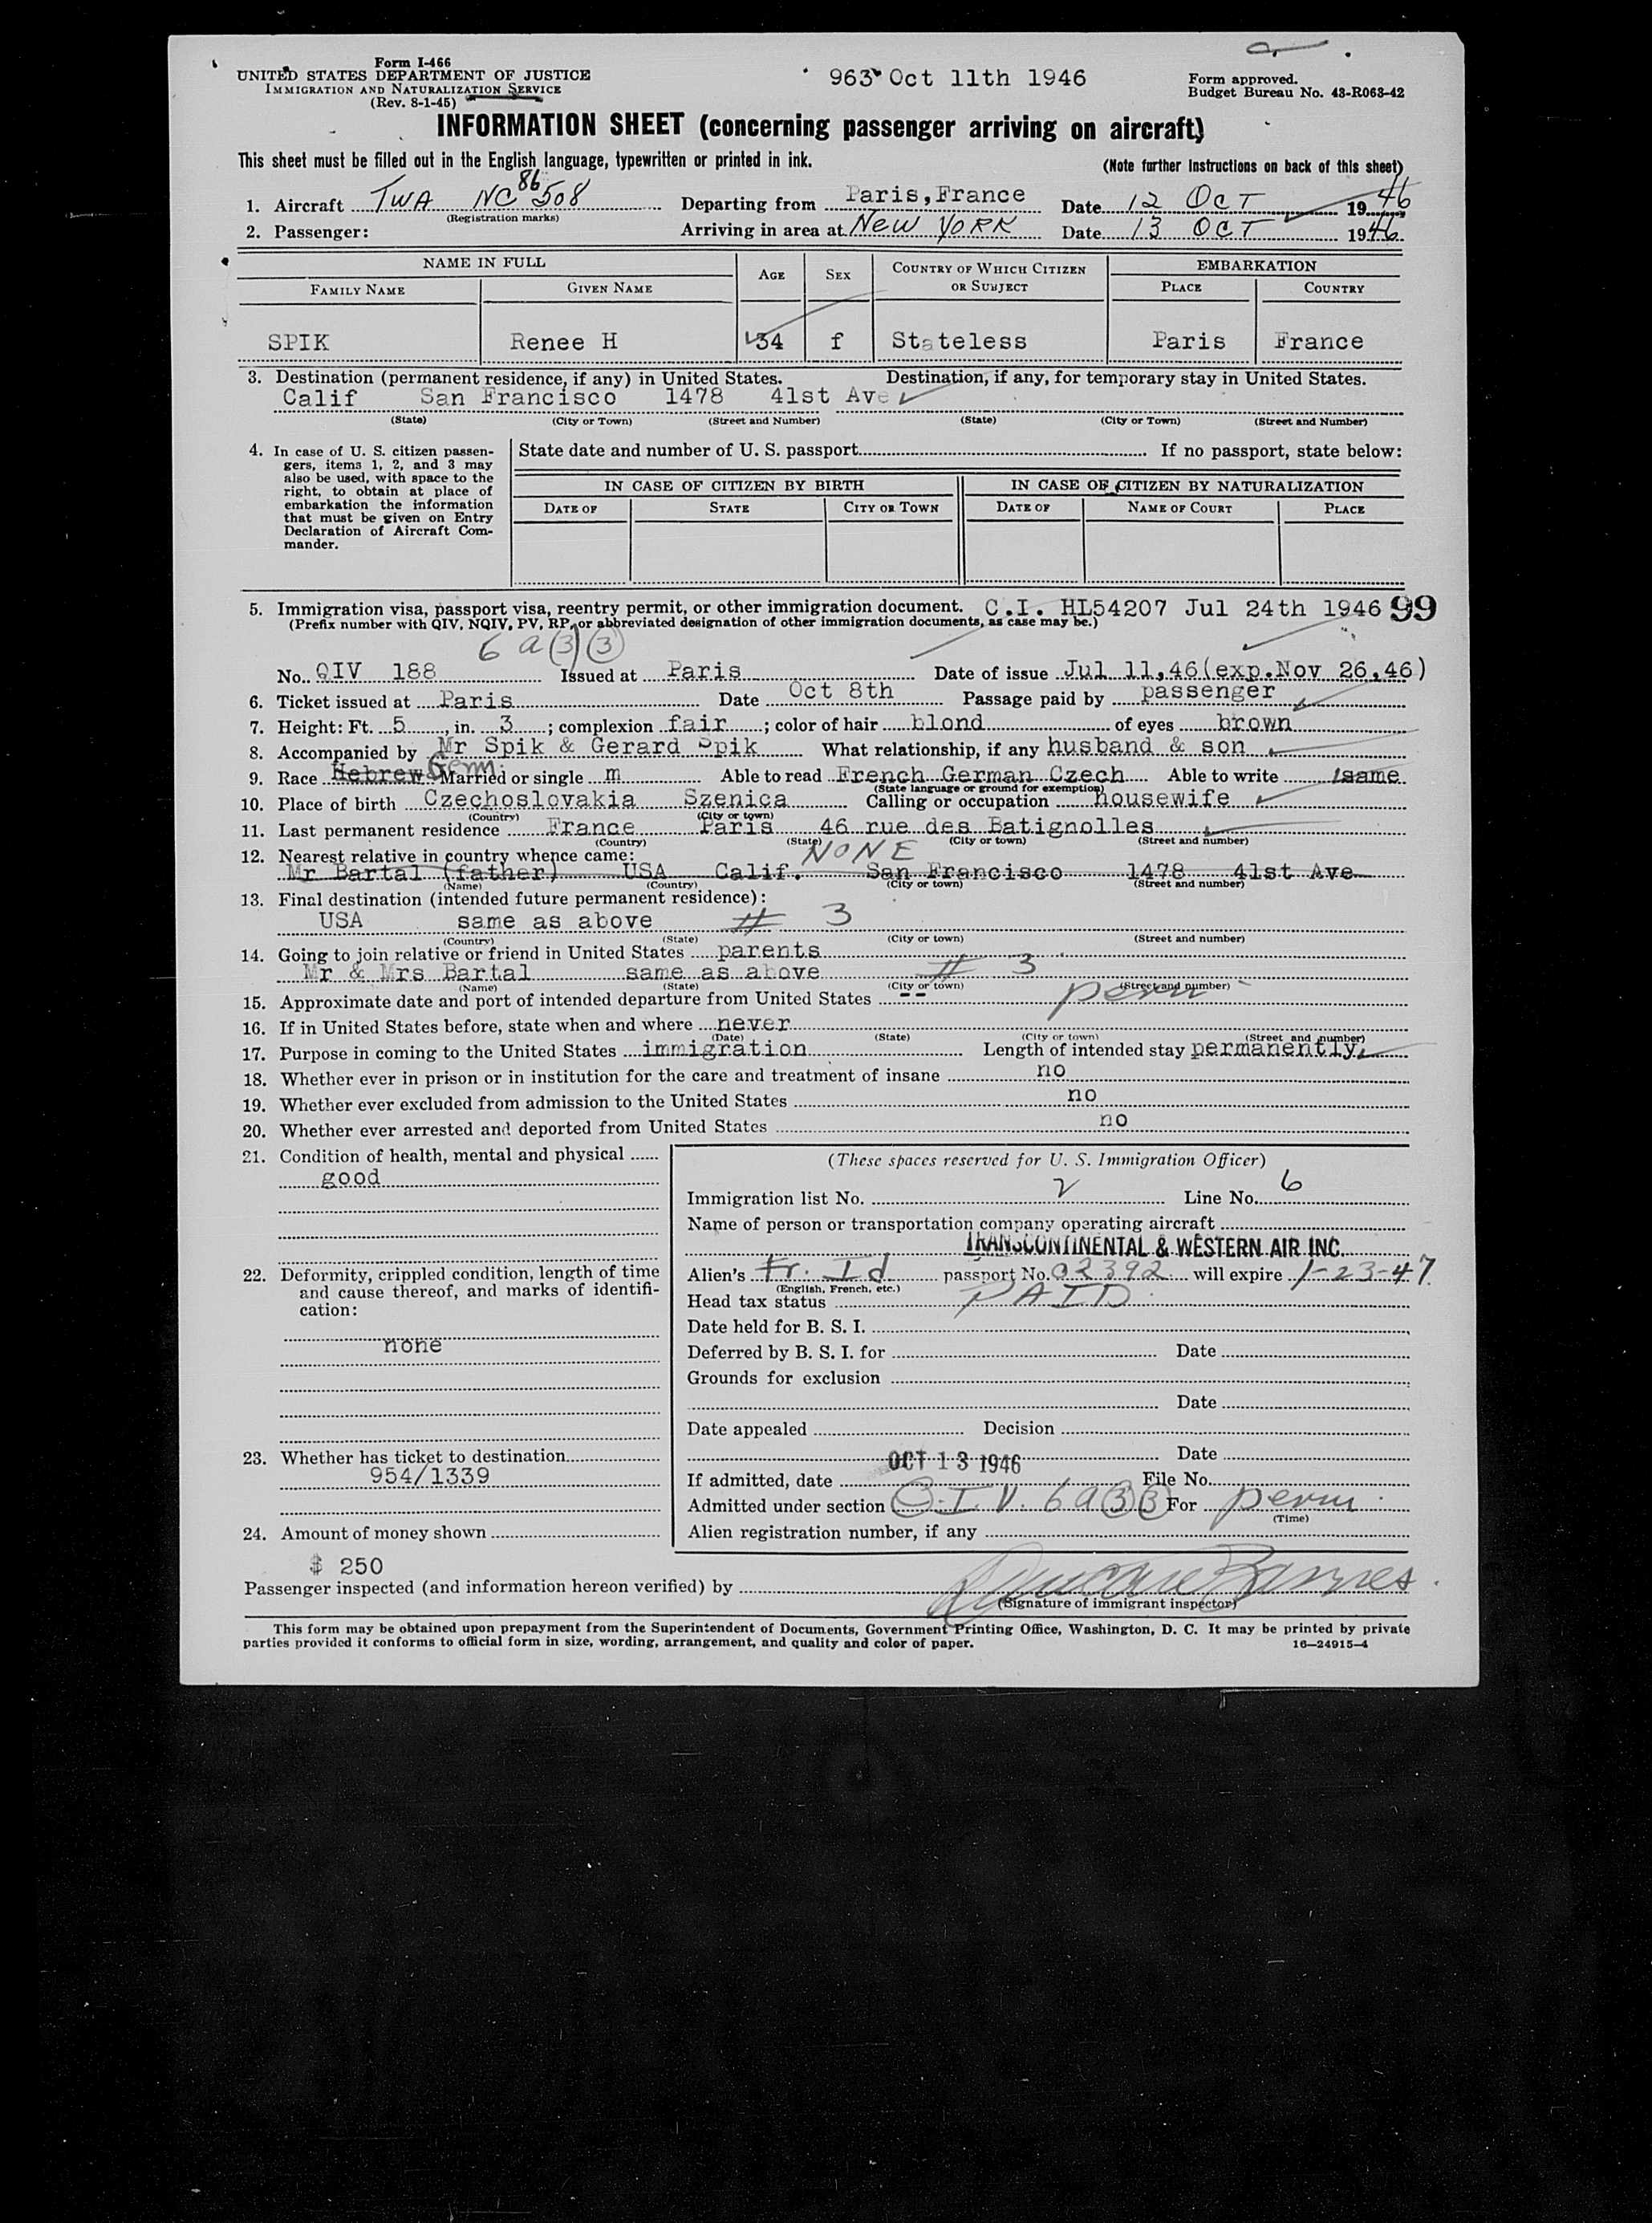 Form I-466
UNITED STATES DEPARTMENT OF JUSTICE
IMMIGRATION AND NATURALIZATION SERVICE
(Rev. 8-1-45)
963 Oct 11th 1946
Form approved.
Budget Bureau No. 43-R063-42
INFORMATION SHEET (concerning passenger arriving on aircraft)
This sheet must be filled out in the English language, typewritten or printed in ink. (Note further instructions on back of this sheet)
1. Aircraft TWA NC 86508 Departing from Paris,France Date 12 OCT 1946
(Registration marks)
2. Passenger: Arriving in area at NEW YORK Date 13 OCT 1946
NAME IN FULL AGE SEX COUNTRY OF WHICH CITIZEN OR SUBJECT EMBARKATION
FAMILY NAME GIVEN NAME PLACE COUNTRY
SPIK Renee H 34 f Stateless Paris France
3. Destination (permanent residence, if any) in United States. Destination, if any, for temporary stay in United States.
Calif San Francisco 1478 41st Ave
(State) (City or Town) (Street and Number) (State) (City or Town) (Street and Number)
4. In case of U. S. citizen passen-
gers, items 1, 2, and 3 may
also be used, with space to the
right, to obtain at place of
embarkation the information
that must be given on Entry
Declaration of Aircraft Com-
mander.
State date and number of U. S. passport If no passport, state below:
IN CASE OF CITIZEN BY BIRTH IN CASE OF CITIZEN BY NATURALIZATION
DATE OF STATE CITY OR TOWN DATE OF NAME OF COURT PLACE
5. Immigration visa, passport visa, reentry permit, or other immigration document. C.I. HL54207 Jul 24th 1946 99
(Prefix number with QIV, NQIV, PV, RP, or abbreviated designation of other immigration documents, as case may be.)
6 a (3) (3)
No. QIV 188 Issued at Paris Date of issue Jul 11,46(exp.Nov 26,46)
6. Ticket issued at Paris Date Oct 8th Passage paid by passenger
7. Height: Ft. 5, in. 3; complexion fair; color of hair blond of eyes brown
8. Accompanied by Mr Spik & Gerard Spik What relationship, if any husband & son
9. Race Hebrew Germ. Married or single m Able to read French German Czech Able to write same
(State language or ground for exemption)
10. Place of birth Czechoslovakia Szenica Calling or occupation housewife
(Country) (City or town)
11. Last permanent residence France Paris 46 rue des Batignolles
(Country) (State) (City or town) (Street and number)
12. Nearest relative in country whence came: NONE
Mr Bartal (father) USA Calif. San Francisco 1478 41st Ave
(Name) (Country) (City or town) (Street and number)
13. Final destination (intended future permanent residence):
USA same as above # 3
(Country) (State) (City or town) (Street and number)
14. Going to join relative or friend in United States parents
Mr & Mrs Bartal same as above # 3
(Name) (State) (City or town) (Street and number)
15. Approximate date and port of intended departure from United States -- perm
16. If in United States before, state when and where never
(Date) (State) (City or town) (Street and number)
17. Purpose in coming to the United States immigration Length of intended stay permanently
18. Whether ever in prison or in institution for the care and treatment of insane no
19. Whether ever excluded from admission to the United States no
20. Whether ever arrested and deported from United States no
21. Condition of health, mental and physical
good
22. Deformity, crippled condition, length of time
and cause thereof, and marks of identifi-
cation:
none
23. Whether has ticket to destination
954/1339
24. Amount of money shown
$ 250
(These spaces reserved for U. S. Immigration Officer)
Immigration list No. 2 Line No. 6
Name of person or transportation company operating aircraft
TRANSCONTINENTAL & WESTERN AIR INC.
Alien's Fr. Id passport No. 02392 will expire 1-23-47
(English, French, etc.)
Head tax status PAID
Date held for B. S. I.
Deferred by B. S. I. for Date
Grounds for exclusion
Date
Date appealed Decision
Date
OCT 13 1946
If admitted, date File No.
Admitted under section Q.I.V. 6a(3)(3) For perm
(Time)
Alien registration number, if any
Passenger inspected (and information hereon verified) by
(Signature of immigrant inspector)
This form may be obtained upon prepayment from the Superintendent of Documents, Government Printing Office, Washington, D. C. It may be printed by private
parties provided it conforms to official form in size, wording, arrangement, and quality and color of paper. 16—24915-4